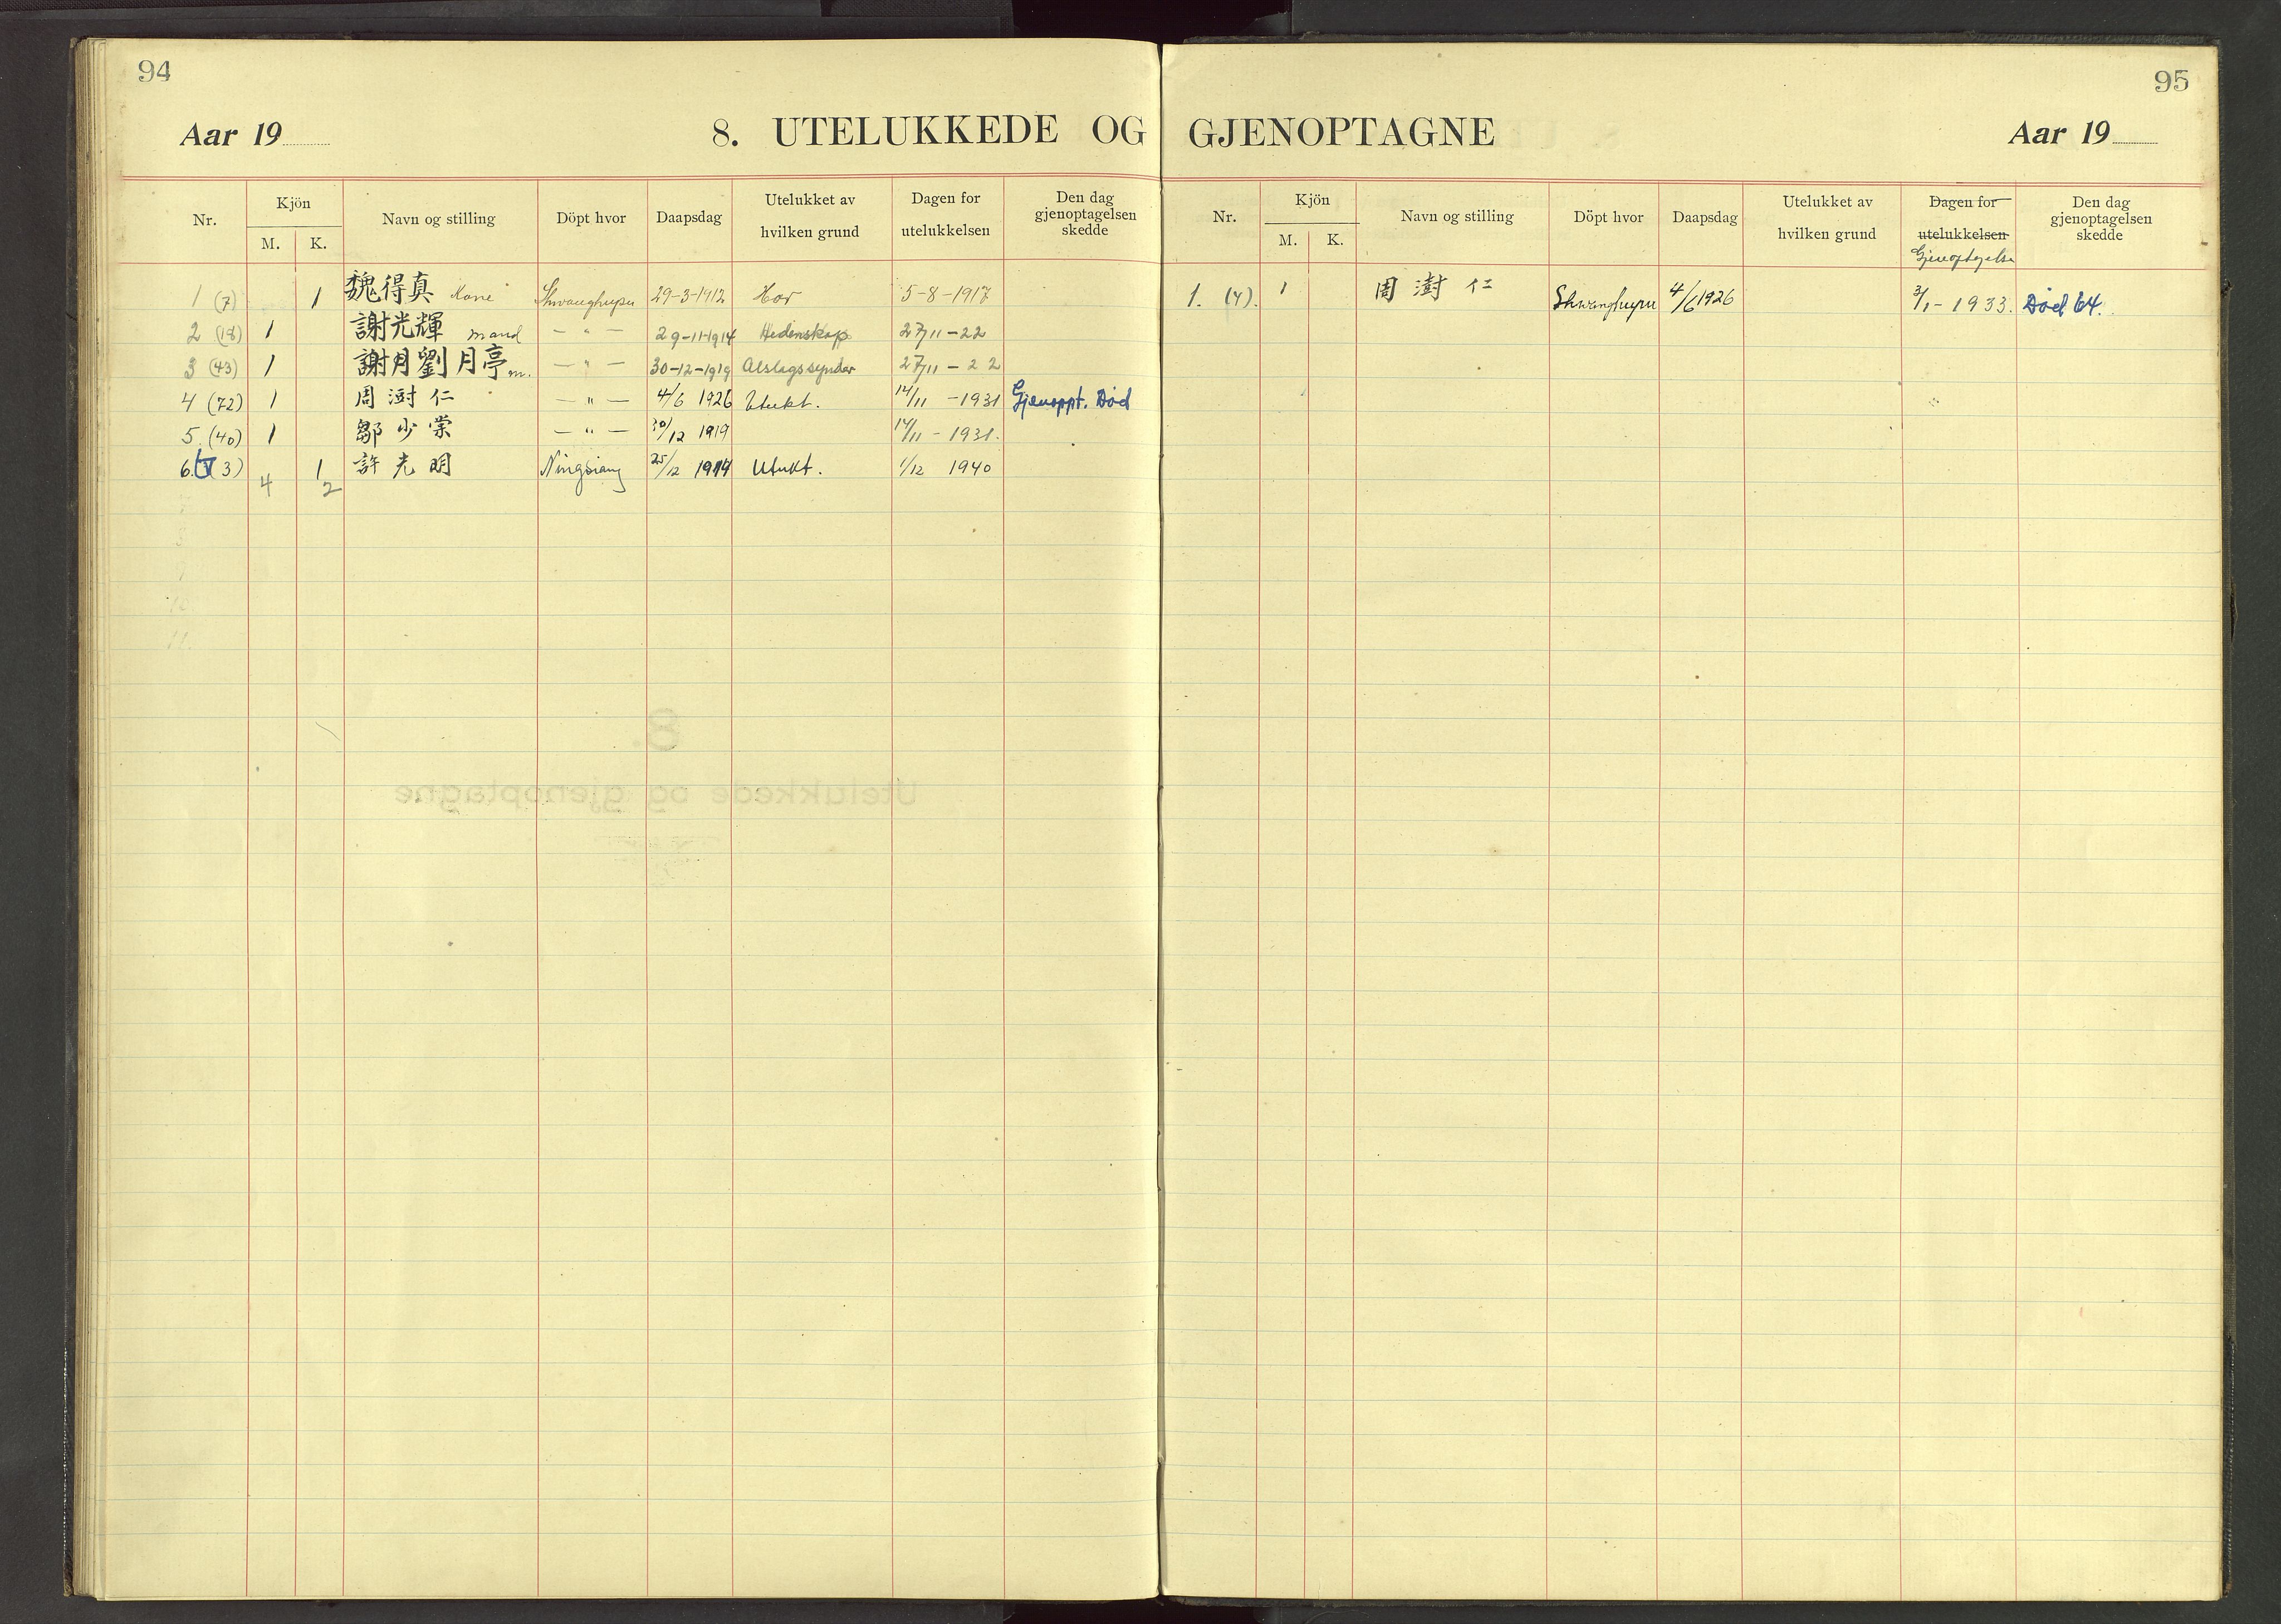 94
Aar 19
8. UTELUKKEDE OG
Nr. Kjön M. K. Navn og stilling Döpt hvor Daapsdag Utelukket av hvilken grund Dagen for utelukkelsen Den dag gjenoptagelsen skedde
1 (7) 1 魏得真 Kone Shwanghupu 29-3-1912 Hor 5-8-1917
2 (18) 1 謝光輝 mand — " — 29-11-1914 Hedenskap 27/11-22
3 (43) 1 謝月劉月亭 m. — " — 30-12-1919 Alslags synder 27/11-22
4 (72) 1 周澍仁 — " — 4/6 1926 Utukt. 14/11 -1931 Gjenoppt. Død
5. (40) 1 鄒少棠 — " — 30/12 1919 14/11 - 1931.
6. 3) 1 許光明 Ningsiang 25/12 1914 Utukt. 1/12 1940
4 2
8.
Utelukkede og gjenoptagne
95
GJENOPTAGNE
Aar 19
Nr. Kjön M. K. Navn og stilling Döpt hvor Daapsdag Utelukket av hvilken grund Dagen for utelukkelsen Gjenoptagelse Den dag gjenoptagelsen skedde
1. 1 周澍仁 Shwanghupu 4/6 1926 3/1- 1933. Død 64.